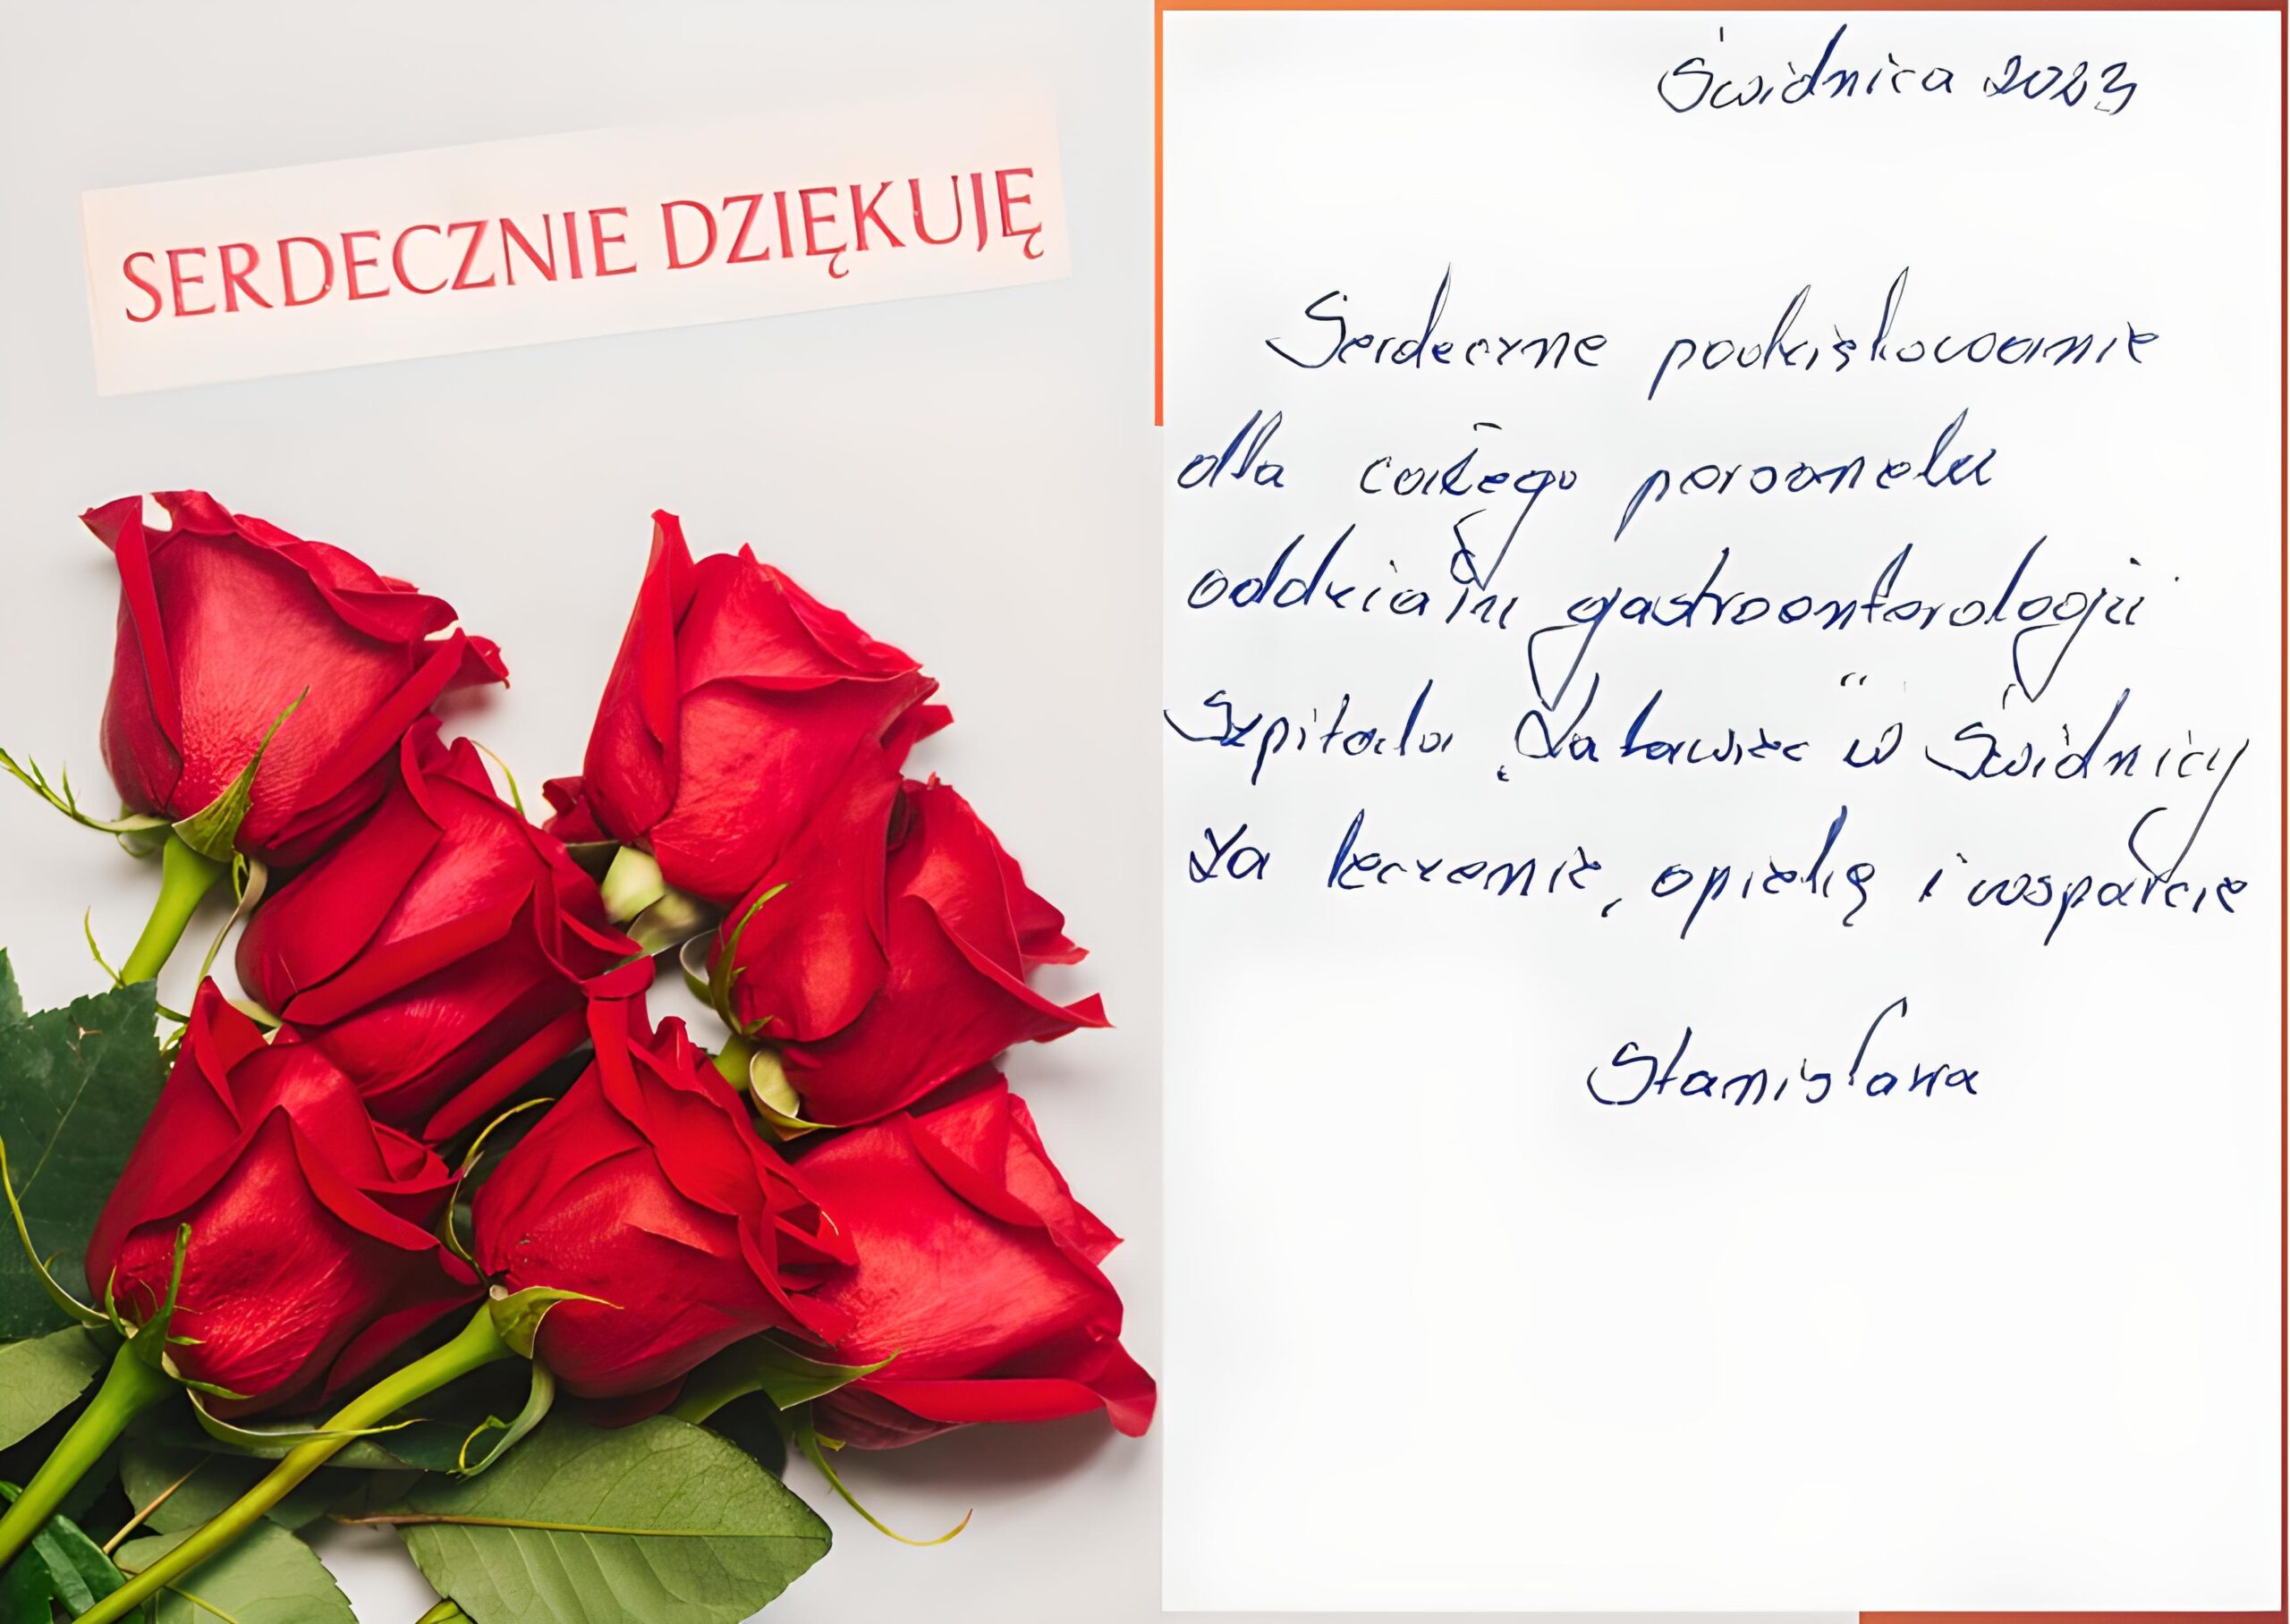 SERDECZNIE DZIĘKUJĘ
Świdnica 2023
Serdeczne podziękowanie
dla całego personelu
oddziału gastroenterologii
Szpitala „Latawiec" w Świdnicy
za leczenie, opiekę i wsparcie
Stanisława